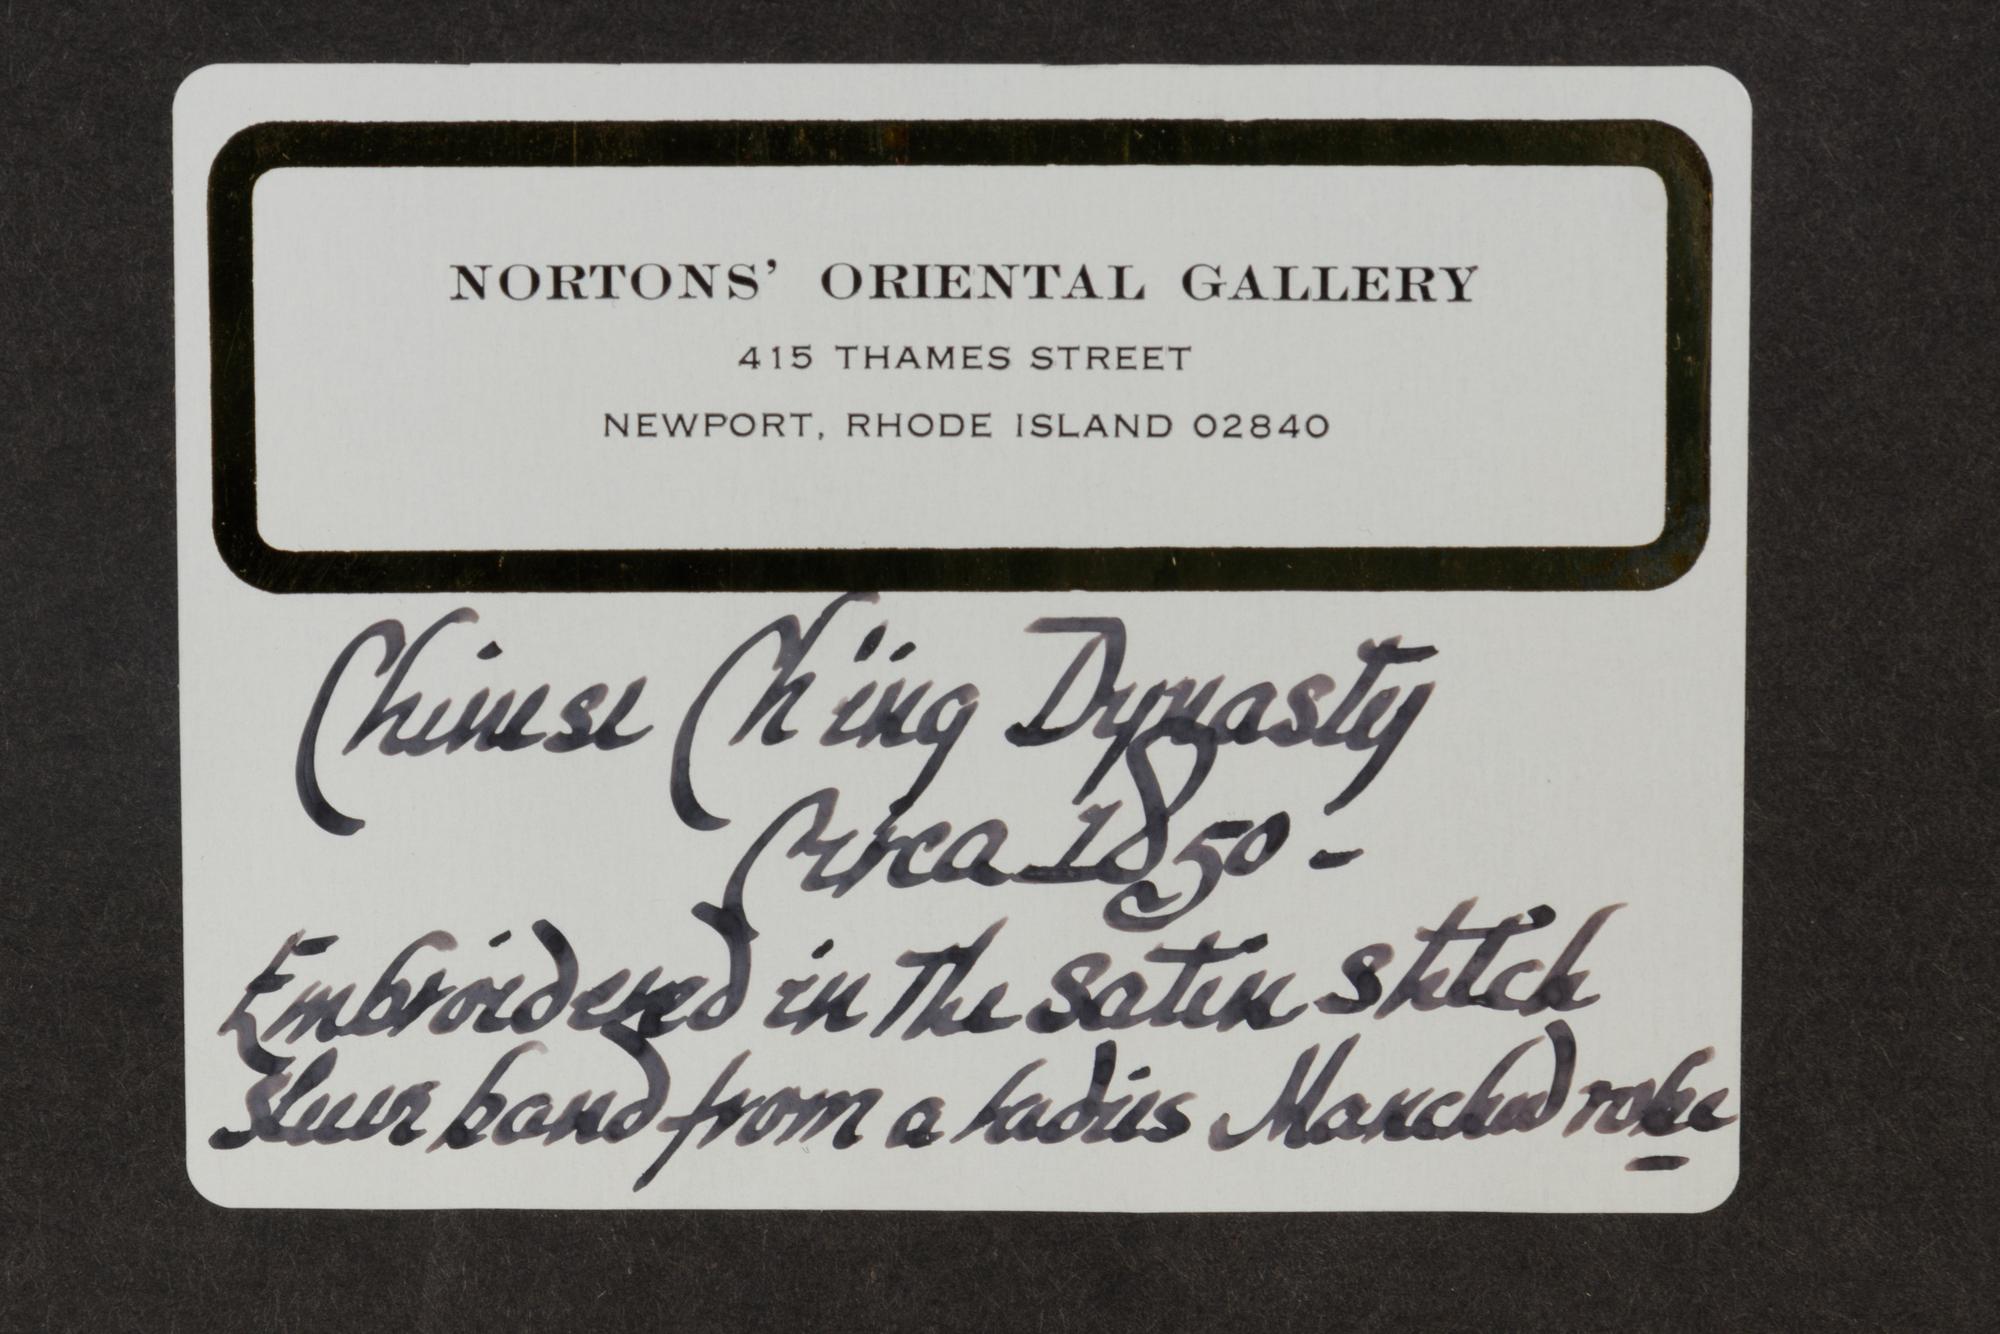 NORTONS' ORIENTAL GALLERY
415 THAMES STREET
NEWPORT, RHODE ISLAND 02840
Chinese Ch'ing Dynasty
Circa 1850 -
Embroidered in The satin stitch
Sleeve band from a ladies Manchu robe